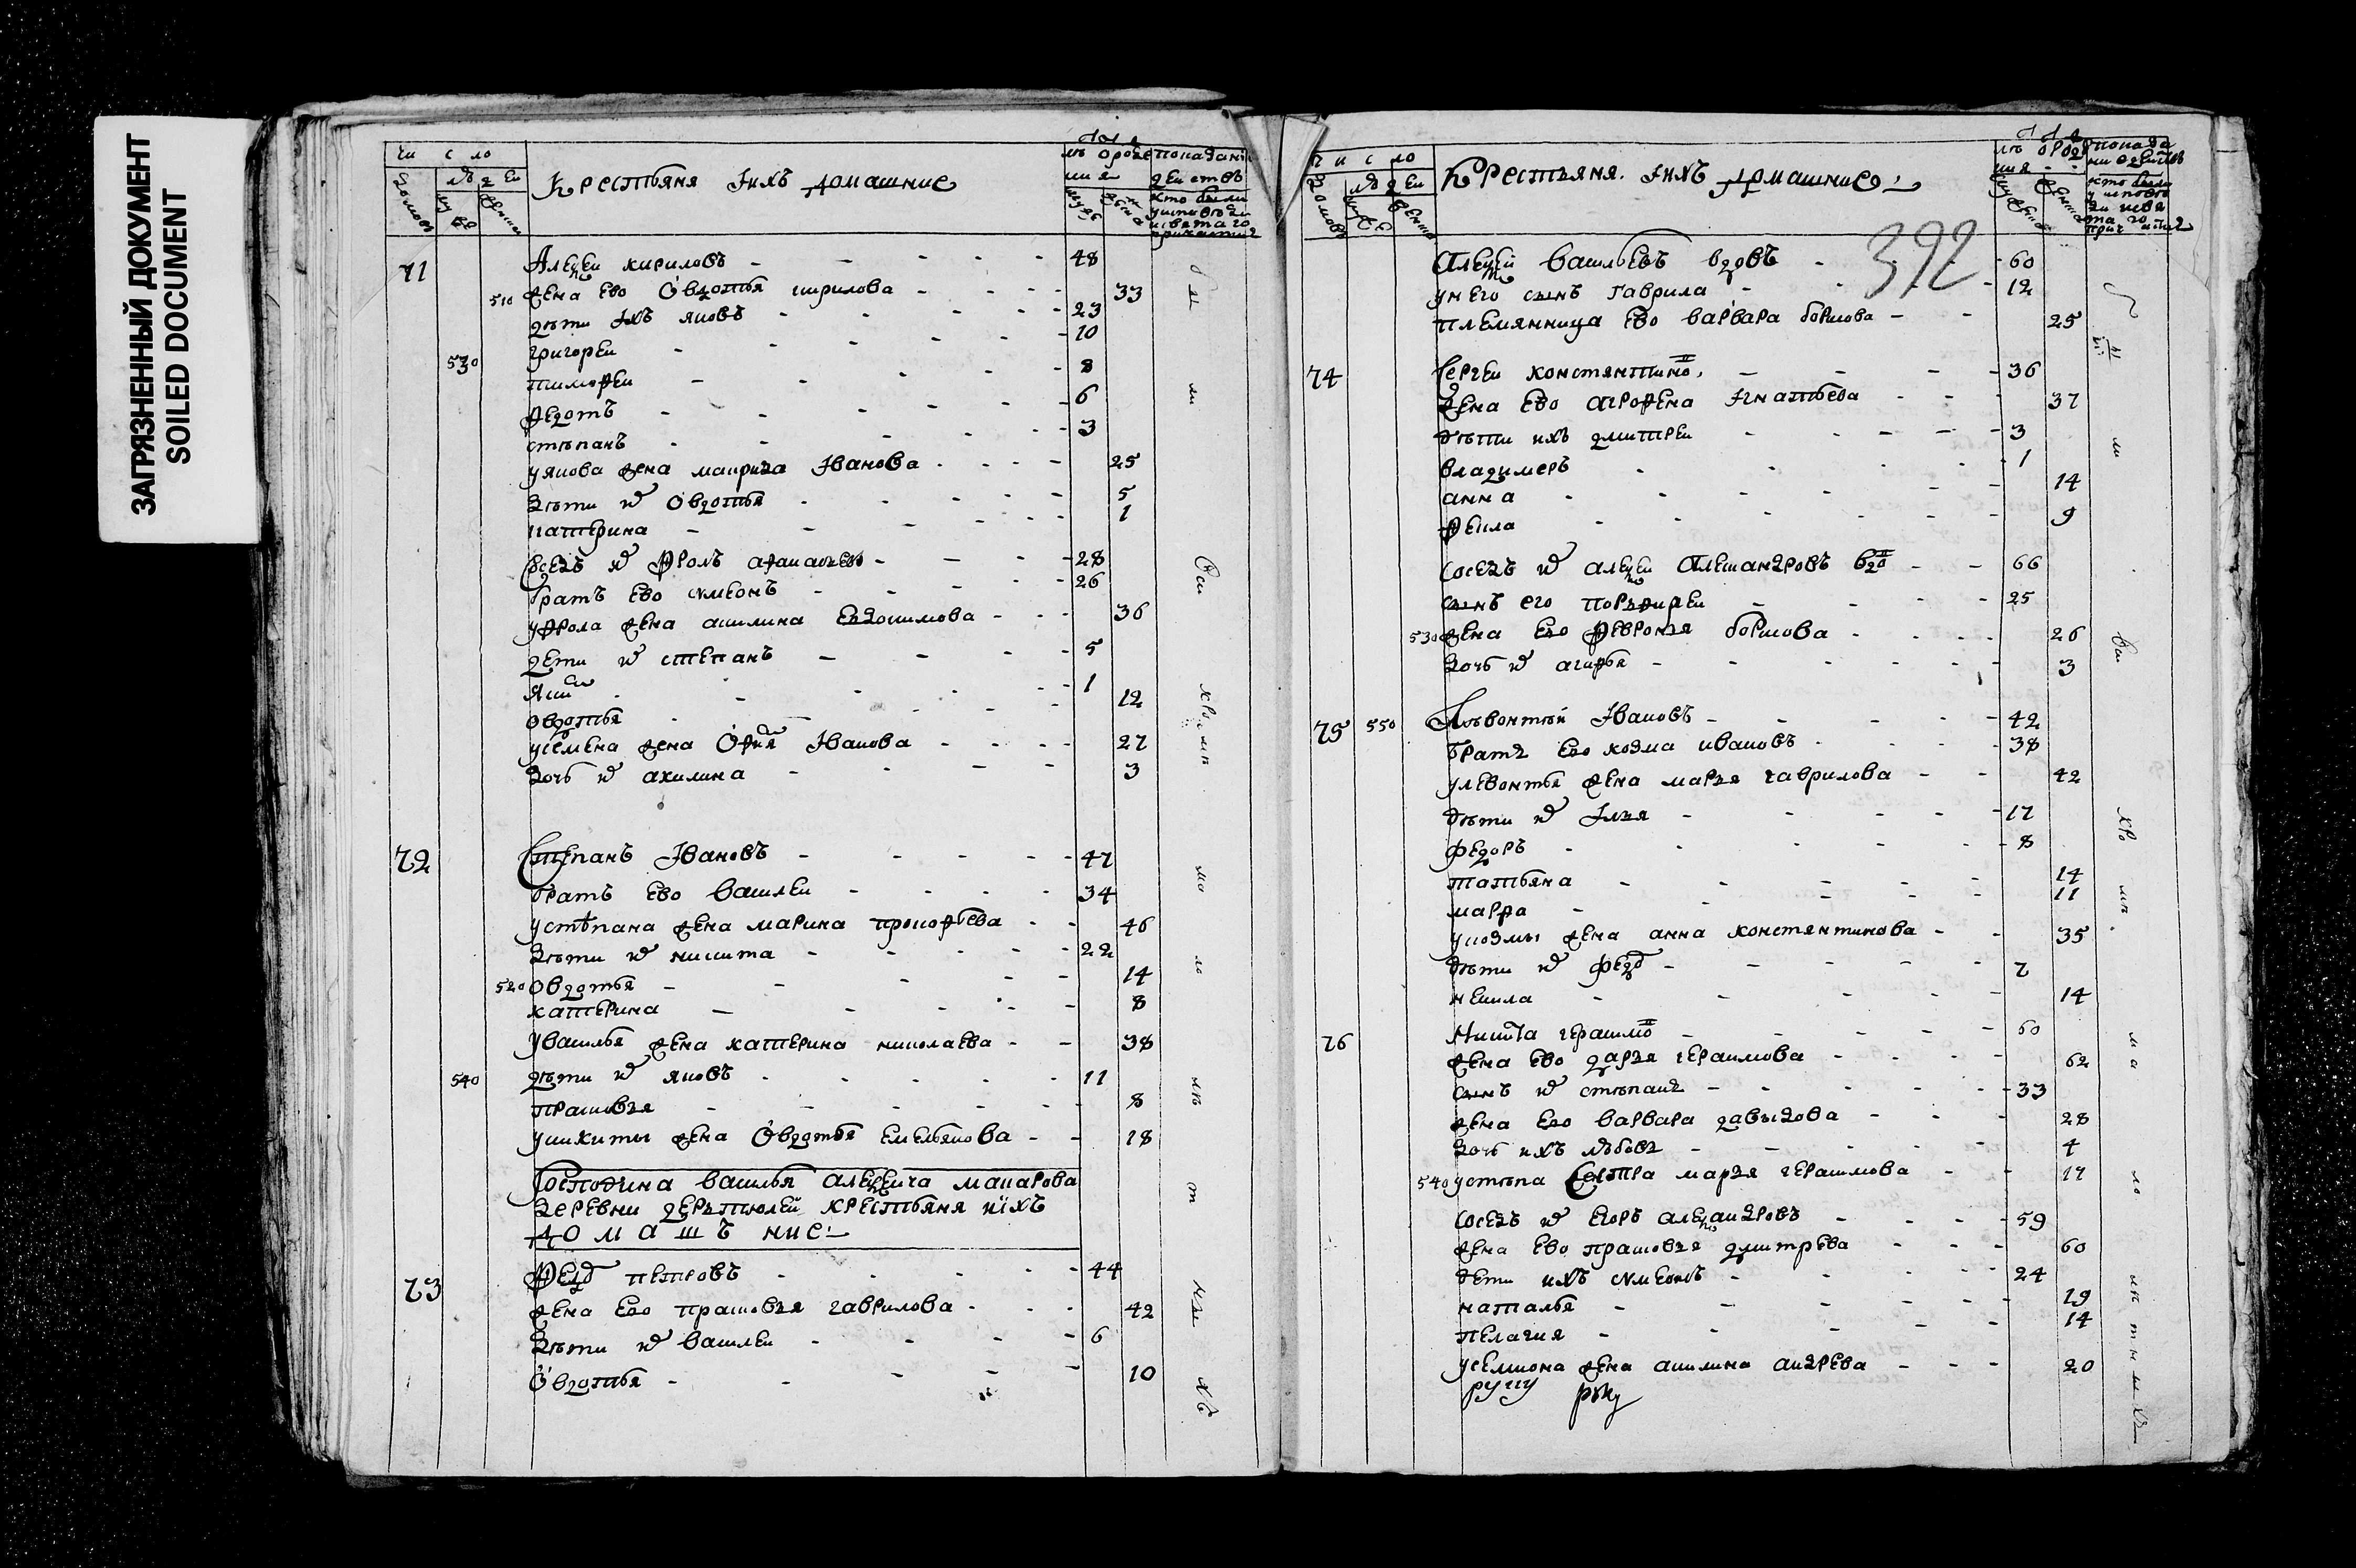 ЗАГРЯЗНЕННЫЙ ДОКУМЕНТ
SOILED DOCUMENT
число
людеи
домовъ
Крестьяня Iихъ домашние
71 Алеѯеи кириловъ - 48
510 жена ево Овдотья кирилова - 33
дѣти Iхъ яковъ - 23
григореи - 10
530 тимофеи - 8
федотъ - 6
стѣпанъ - 3
у якова жена маириѕа Iванова - 25
дѣти их Овдотья - 5
катерина - 1
сосед их фролъ афанасьевъ - 28
братъ ево симеонъ - 26
у фрола жена акилина Евдокимова - 36
дети их степанъ - 5
яков - 1
овдотья - 12
у семена жена Офия Iванова - 27
дочь их акилина - 3
72 Степанъ Iвановъ - 47
братъ ево василеи - 34
у стѣпана жена марина прокофьева - 46
дѣти их никита - 22
520 овдотья - 14
катерина - 8
у василья жена катерина николаева - 38
540 дѣти их яковъ - 11
прасковья - 8
у никиты жена Овдотья Емельянова - 18
Господина василья алеѯеича макарова
деревни дертюлей крестьяня иiхъ
домашъние
73 Федор петровъ - 44
жена ево прасковья гаврилова - 42
дѣти их василеи - 6
Овдотья - 10
число
людеи
домовъ
Крестьяня. Iихъ домашние
392
Алеѯей васильевъ вдовъ - 60
у него сынъ гаврила - 12
племянница ево варвара борисова - 25
74 Сергеи константинов - 36
жена ево агрофена Iгнатьева - 37
дѣти ихъ дмитреи - 3
владимеръ - 1
анна - 14
фекла - 9
сосед их алеѯеи алеѯандровъ вдов - 66
сынъ его порфиреи - 25
530 жена ево февронья борисова - 26
дочь их агафья - 3
75 550 Лѣвонтѣй Iвановъ - 42
братъ ево козма ивановъ - 38
у левонтья жена марья гаврилова - 42
дѣти их Iлья - 17
федоръ - 8
татьяна - 14
марфа - 11
у козмы жена анна константинова - 35
дѣти их федор - 7
некила - 14
76 Никита герасимов - 60
жена ево дарья герасимова - 62
сынъ их стѣпанъ - 33
жена ево варвара давыдова - 28
дочь ихъ любовь - 4
540 у стѣпана Сестра марья герасимова - 17
сосед их Егоръ алеѯандровъ - 59
жена ево прасковья дмитрева - 60
дети ихъ симеонъ - 24
наталья - 19
пелагия - 14
у семиона жена акилина андрева - 20
руку